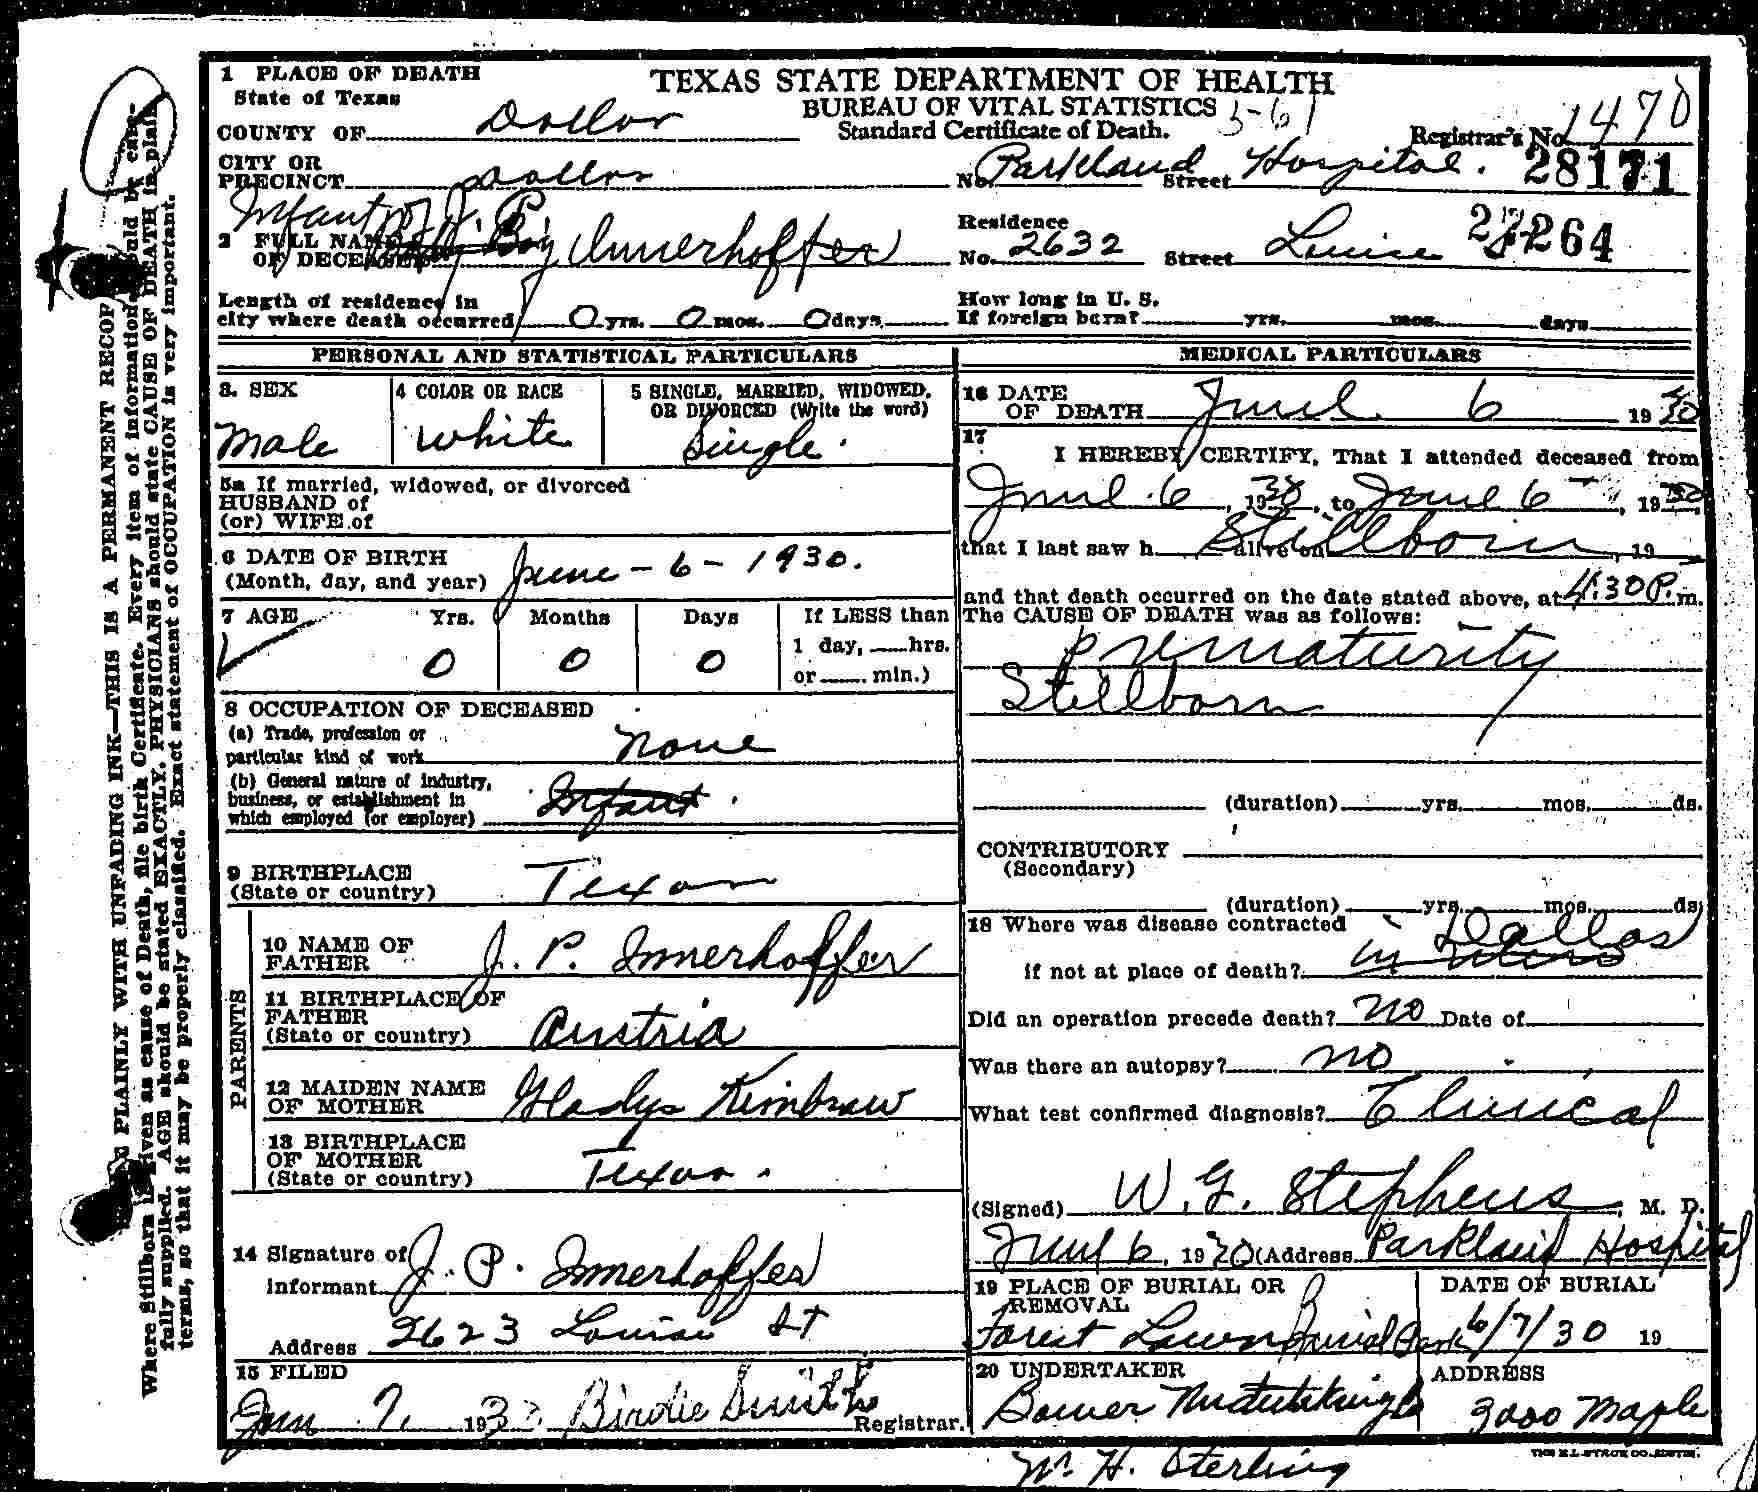 1 PLACE OF DEATH
State of Texas
TEXAS STATE DEPARTMENT OF HEALTH
BUREAU OF VITAL STATISTICS
Standard Certificate of Death.
3-61
Registrar's No. 1470
COUNTY OF Dallas
CITY OR PRECINCT Dallas
No. Parkland Street Hospital. 28171
2 FULL NAME OF DECEASED Infant of J. P. Baby Boy Innerhoffer
Residence
No. 2632 Street Louise 264
Length of residence in city where death occurred 0 yrs. 0 mos. 0 days.
How long in U. S. If foreign born? yrs. mos. days
PERSONAL AND STATISTICAL PARTICULARS
3. SEX
Male
4 COLOR OR RACE
White
5 SINGLE, MARRIED, WIDOWED, OR DIVORCED (Write the word)
Single.
5a If married, widowed, or divorced
HUSBAND of
(or) WIFE of
6 DATE OF BIRTH
(Month, day, and year) June - 6 - 1930.
7 AGE Yrs. Months Days If LESS than
1 day, hrs.
or min.)
0 0 0
8 OCCUPATION OF DECEASED
(a) Trade, profession or particular kind of work none
(b) General nature of industry, business, or establishment in which employed (or employer) Infant.
9 BIRTHPLACE
(State or country) Texas
PARENTS
10 NAME OF FATHER J. P. Innerhoffer
11 BIRTHPLACE OF FATHER
(State or country) Austria
12 MAIDEN NAME OF MOTHER Gladys Kimbraw
13 BIRTHPLACE OF MOTHER
(State or country) Texas.
14 Signature of informant J. P. Innerhoffer
Address 2623 Louise St
15 FILED
Jun 7, 1930 Birdie Smith Registrar.
MEDICAL PARTICULARS
16 DATE OF DEATH June 6 1930
17
I HEREBY CERTIFY, That I attended deceased from
June 6, 1930, to June 6, 1930,
that I last saw h alive on Stillborn, 19
and that death occurred on the date stated above, at 4:30 P. m.
The CAUSE OF DEATH was as follows:
Prematurity
Stillborn
(duration) yrs. mos. ds.
CONTRIBUTORY
(Secondary)
(duration) yrs. mos. ds.
18 Where was disease contracted
if not at place of death? in utero Dallas
Did an operation precede death? no Date of
Was there an autopsy? no
What test confirmed diagnosis? Clinical
(Signed) W. G. Stephens, M. D.
June 6, 1930 (Address Parkland Hospital
19 PLACE OF BURIAL OR REMOVAL
Forest Lawn Burial Park
DATE OF BURIAL
6/7/30 19
20 UNDERTAKER
ADDRESS
3000 Maple
THE E.L. STECK CO. AUSTIN.
H. Sterling
PLAINLY WITH UNFADING INK—THIS IS A PERMANENT
Where Stillborn is given as cause of Death, file birth Certificate. Every item of information should be care-
fully supplied. AGE should be stated EXACTLY. PHYSICIANS should state CAUSE OF DEATH in plain
terms, so that it may be properly classified. Exact statement of OCCUPATION is very important.